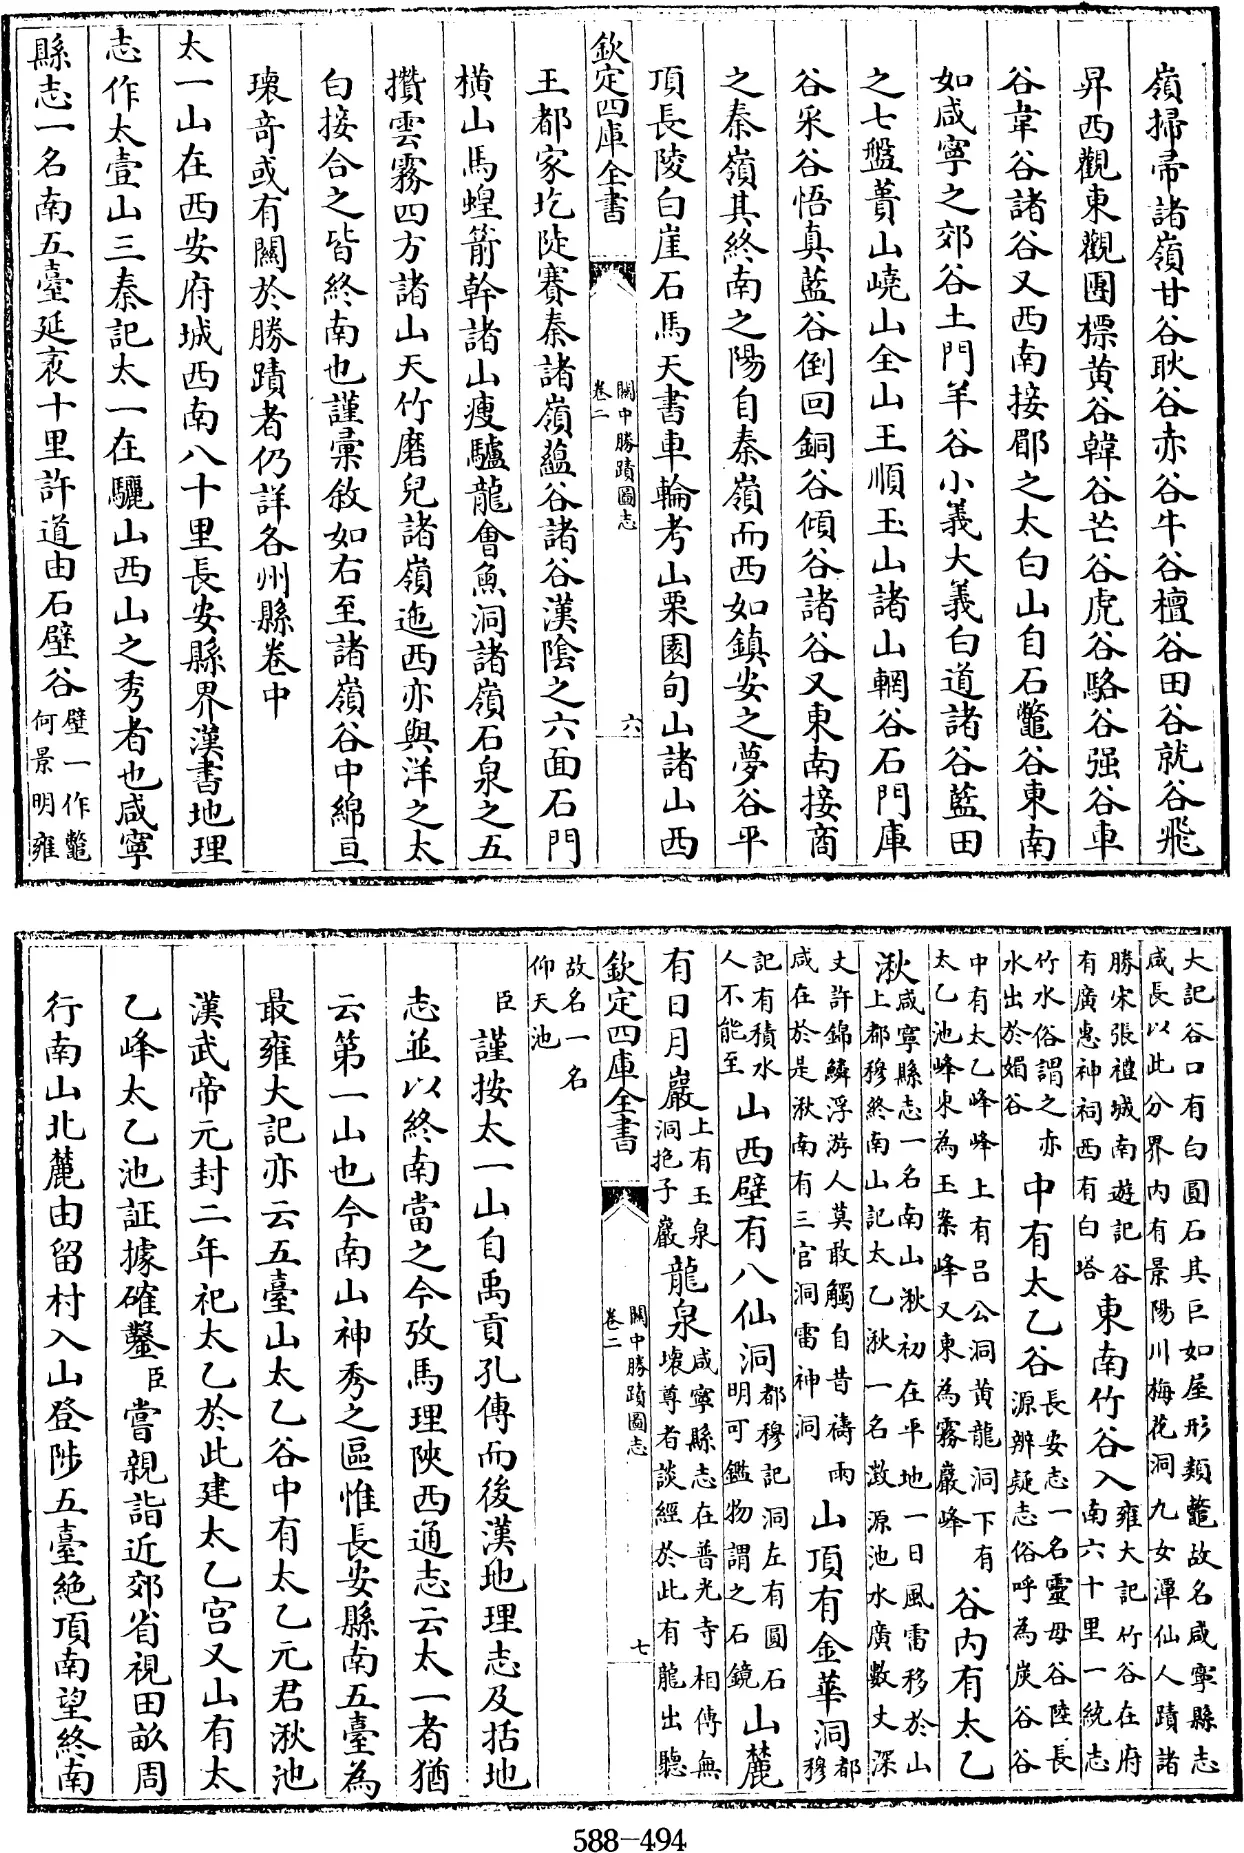 嶺掃帚諸嶺甘谷耿谷赤谷牛谷檀谷田谷就谷飛
昇西觀東觀團標黄谷韓谷芒谷虎谷駱谷强谷車
谷韋谷諸谷又西南接郿之太白山自石鼈谷東南
如咸寧之郊谷土門羊谷小義大義白道諸谷藍田
之七盤蕢山嶢山全山王順玉山諸山輞谷石門庫
谷采谷悟真藍谷倒回銅谷傾谷諸谷又東南接商
之秦嶺其終南之陽自秦嶺而西如鎮安之夢谷平
頂長陵白崖石馬天書車輪考山栗園句山諸山西
欽定四庫全書
關中勝蹟圖志
卷二
六
王都家圪陡賽秦諸嶺藴谷諸谷漢陰之六面石門
橫山馬蝗箭幹諸山瘦驢龍會魚洞諸嶺石泉之五
攢雲霧四方諸山天竹磨兒諸嶺迤西亦與洋之太
白接合之皆終南也謹彙敘如右至諸嶺谷中綿亘
瓌竒或有關於勝蹟者仍詳各州縣卷中
太一山在西安府城西南八十里長安縣界漢書地理
志作太壹山三秦記太一在驪山西山之秀者也咸寧
縣志一名南五臺延袤十里許道由石壁谷壁一作鼈
何景明雍
大記谷口有白圓石其巨如屋形類鼈故名咸寧縣志
咸長以此分界内有景陽川梅花洞九女潭仙人蹟諸
勝宋張禮城南遊記谷
有廣惠神祠西有白塔東南竹谷入雍大記竹谷在府
南六十里一統志
竹水俗謂之赤
水出於媚谷中有太乙谷長安志一名靈母谷陸長
源辨疑志俗呼為炭谷谷
中有太乙峰峰上有吕公洞黄龍洞下有
太乙池峰東為玉案峰又東為霧巖峰谷内有太乙
湫咸寧縣志一名南山湫初在平地一日風雷移於山
上都穆終南山記太乙湫一名澂源池水廣數丈深
丈許錦鱗浮游人莫敢觸自昔禱雨
咸在於是湫南有三官洞雷神洞山頂有金華洞都
穆
記有積水
人不能至山西壁有八仙洞都穆記洞左有圓石
明可鑑物謂之石鏡山麓
有日月巖上有玉泉
洞抱子巖龍泉咸寧縣志在普光寺相傳無
壞尊者談經於此有龍出聽
欽定四庫全書
關中勝蹟圖志
卷二
七
故名一名
仰天池
臣謹按太一山自禹貢孔傳而後漢地理志及括地
志並以終南當之今攷馬理陝西通志云太一者猶
云第一山也今南山神秀之區惟長安縣南五臺為
最雍大記亦云五臺山太乙谷中有太乙元君湫池
漢武帝元封二年祀太乙於此建太乙宫又山有太
乙峰太乙池証據確鑿臣嘗親詣近郊省視田畝周
行南山北麓由留村入山登陟五臺絶頂南望終南
588-494